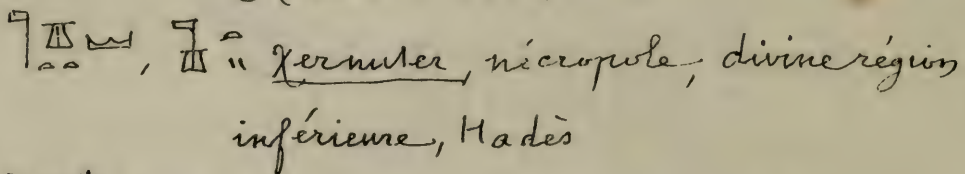 χernuter, nécropole, divine région
inférieure, Hadès